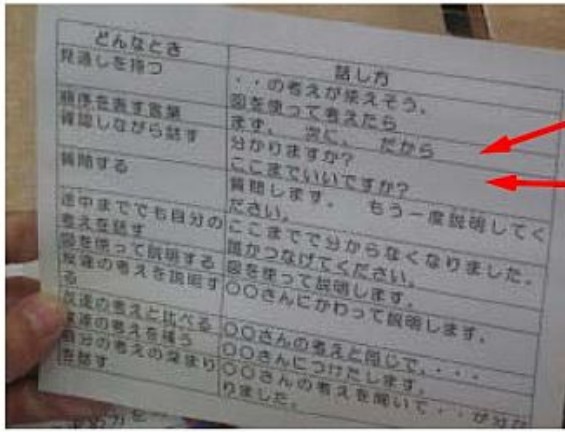 どんなとき 話し方
見通しを持つ ・・の考えが使えそう。
図を使って考えたら
順序を表す言葉 まず、 次に、 だから
確認しながら話す 分かりますか?
ここまでいいですか?
質問する 質問します。 もう一度説明してく
ださい。
途中まででも自分の ここまでで分からなくなりました。
考えを話す 誰かつなげてください。
図を使って説明する 図を使って説明します。
友達の考えを説明す ○○さんにかわって説明します。
る
友達の考えと比べる ○○さんの考えと同じで、・・・・
友達の考えを補う ○○さんにつけたします。
自分の考えの深まり ○○さんの考えを聞いて・・が分か
を話す りました。